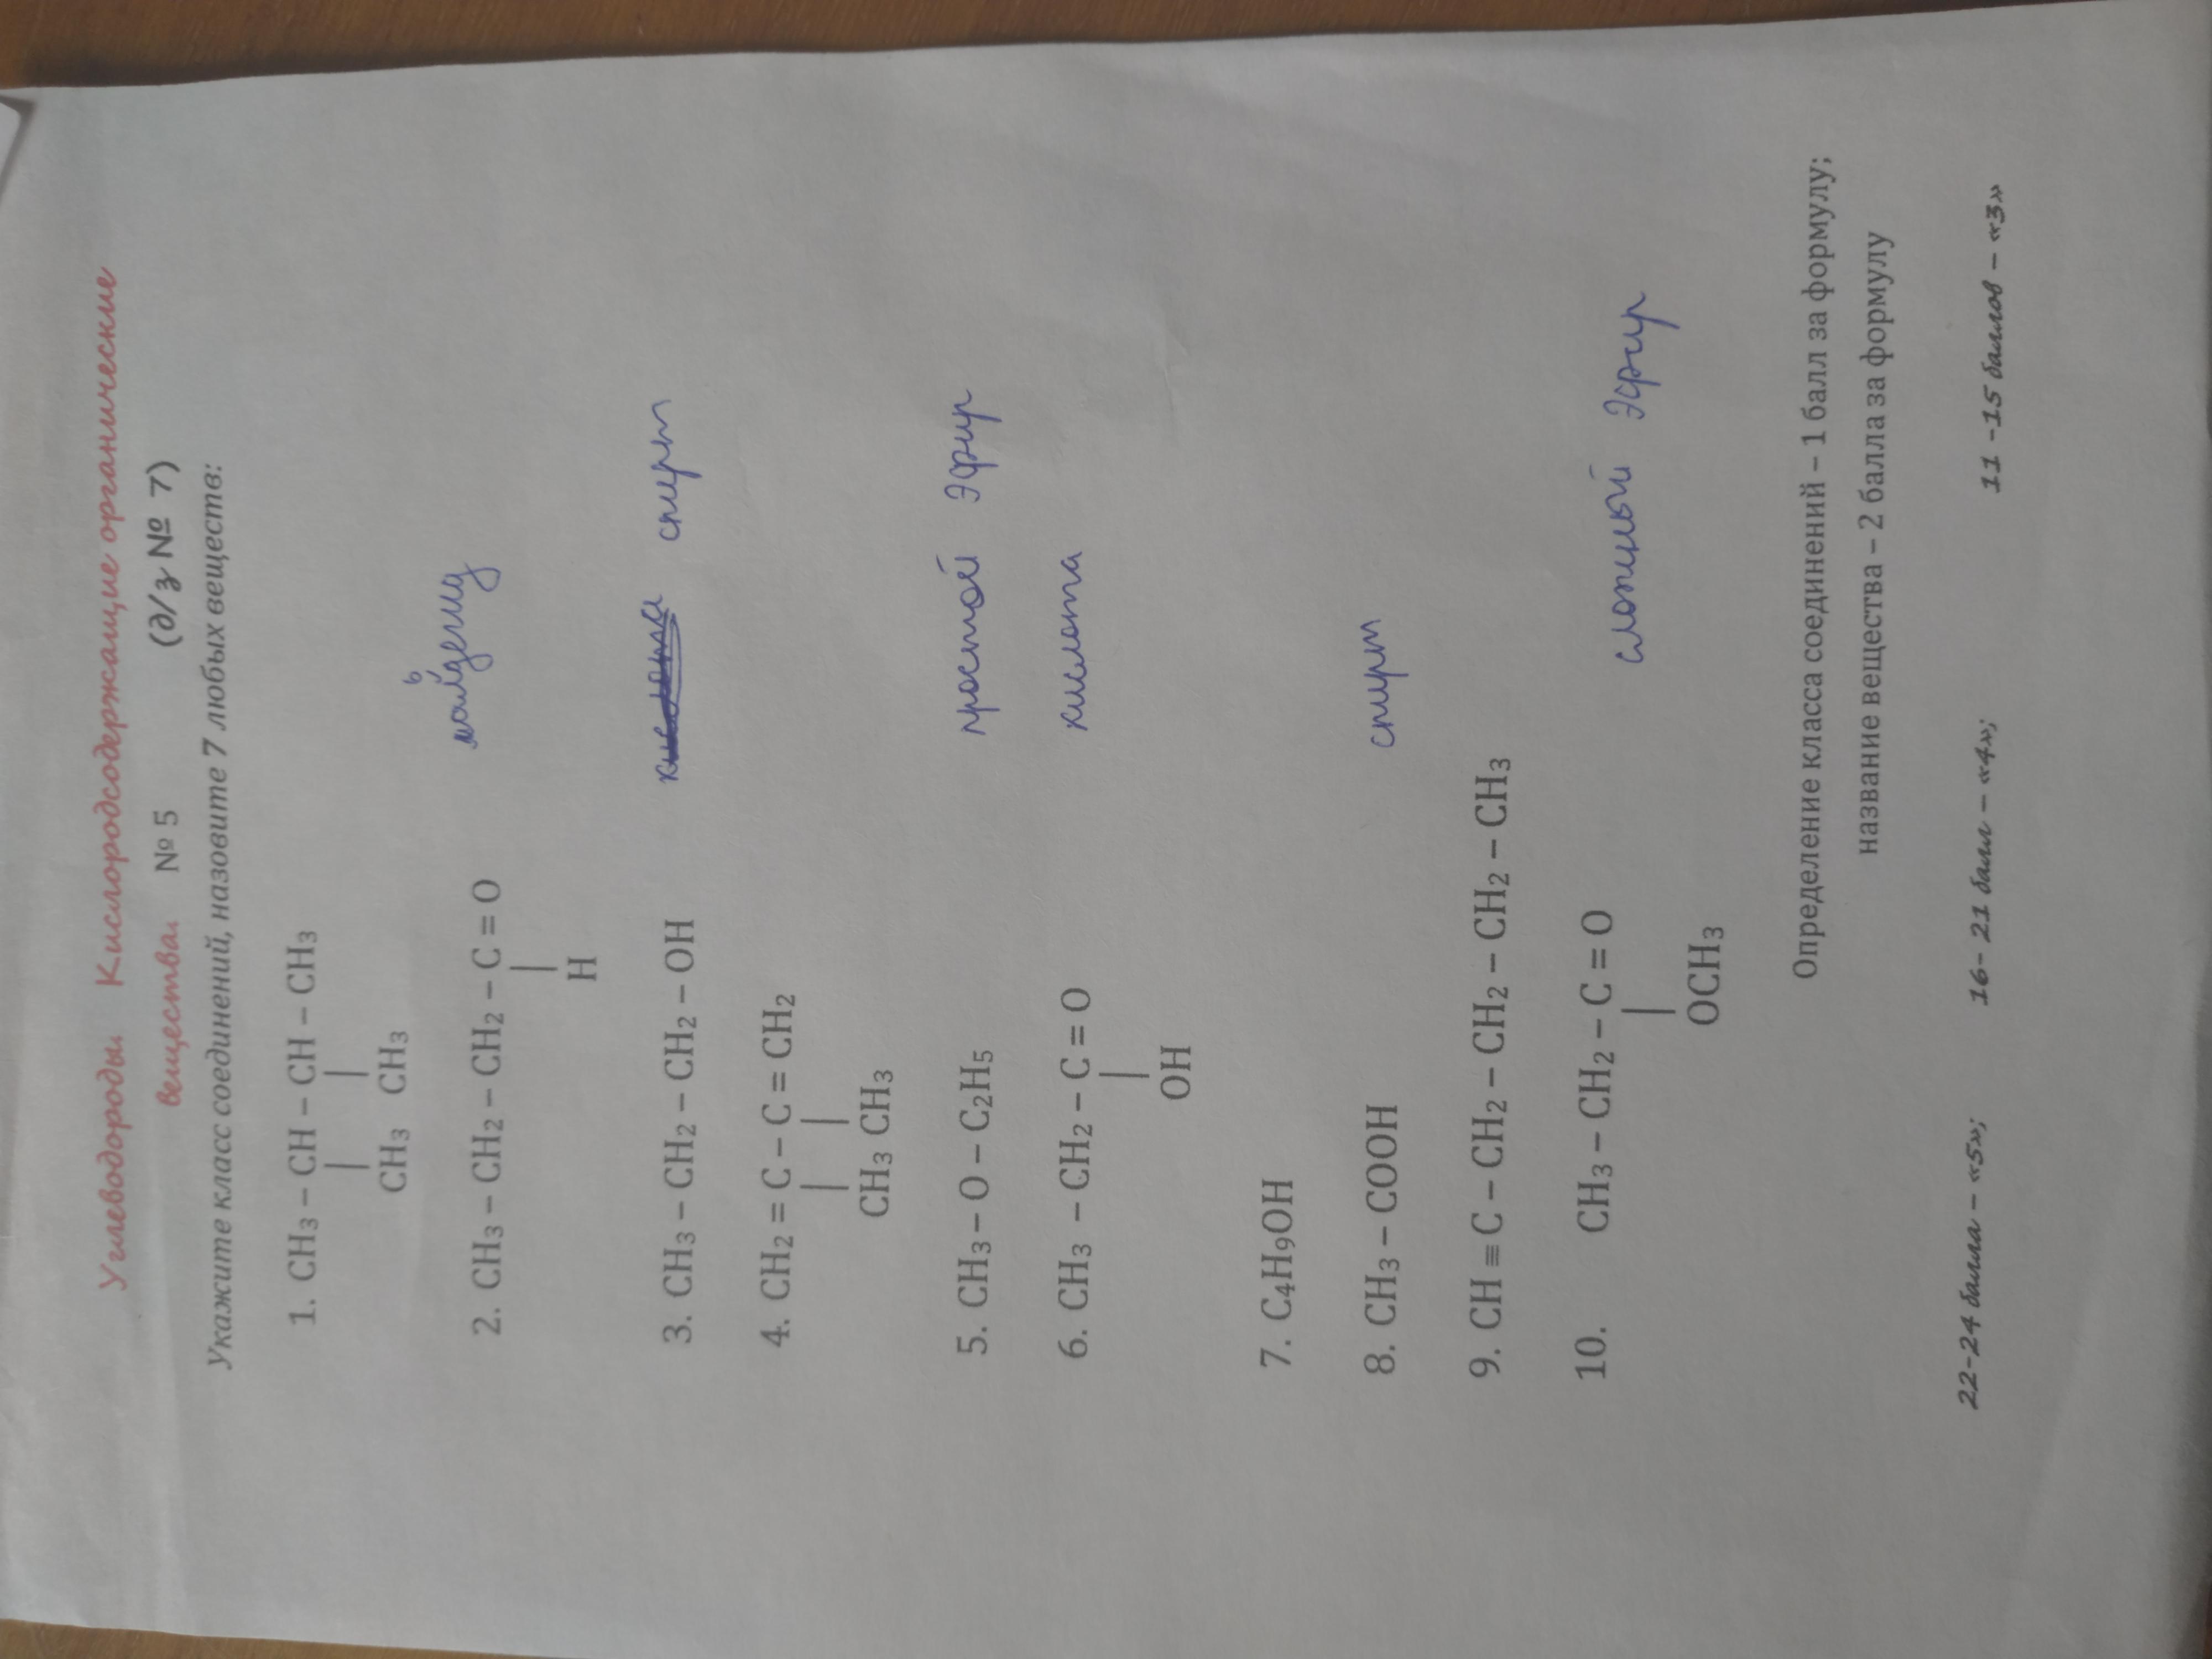 Углеводороды. Кислородсодержащие органические
вещества. № 5 (д/з № 7)
Укажите класс соединений, назовите 7 любых веществ:
1. CH₃ – CH – CH – CH₃
| |
CH₃ CH₃
2. CH₃ – CH₂ – CH₂ – C = O альдегид
|
H
3. CH₃ – CH₂ – CH₂ – OH спирт
4. CH₂ = C – C = CH₂
| |
CH₃ CH₃
5. CH₃ – O – C₂H₅ простой эфир
6. CH₃ – CH₂ – C = O кислота
|
OH
7. C₄H₉OH
8. CH₃ – COOH спирт
9. CH ≡ C – CH₂ – CH₂ – CH₂ – CH₃
10. CH₃ – CH₂ – C = O сложный эфир
|
OCH₃
Определение класса соединений – 1 балл за формулу;
название вещества – 2 балла за формулу
22-24 балла – «5»; 16- 21 балл – «4»; 11 -15 баллов – «3»